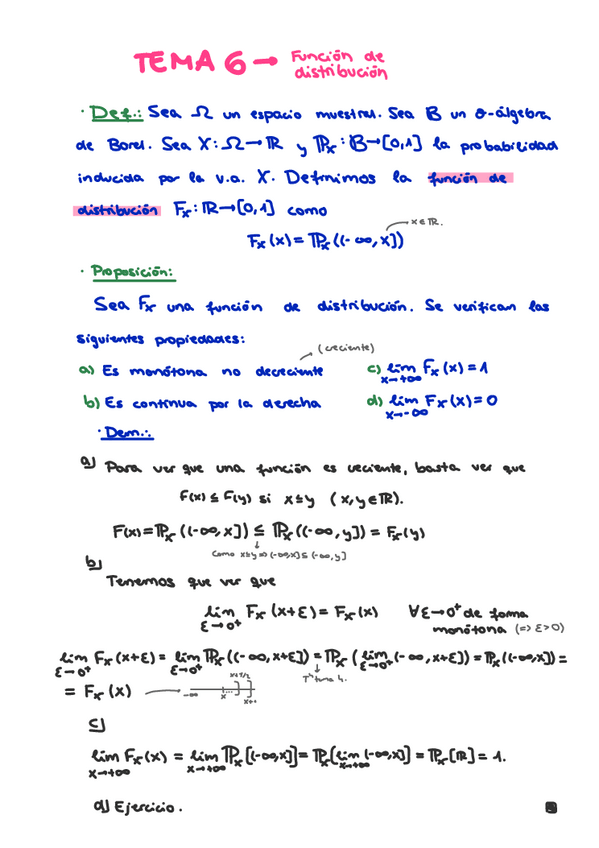 TEMA 6 → Función de
distribución
· Def.: Sea Ω un espacio muestral. Sea B un σ-álgebra
de Borel. Sea X: Ω → ℝ y ℙₓ: B → [0,1] la probabilidad
inducida por la v.a. X. Definimos la función de
distribución Fₓ: ℝ → [0,1] como
x ∈ ℝ.
Fₓ(x) = ℙₓ((-∞, x])
· Proposición:
Sea Fₓ una función de distribución. Se verifican las
siguientes propiedades:
(creciente)
a) Es monótona no decreciente c) lim Fₓ(x) = 1
x→+∞
b) Es continua por la derecha d) lim Fₓ(x) = 0
x→-∞
· Dem.:
a) Para ver que una función es creciente, basta ver que
F(x) ≤ F(y) si x ≤ y (x, y ∈ ℝ).
F(x) = ℙₓ((-∞, x]) ≤ ℙₓ((-∞, y]) = Fₓ(y)
Como x≤y ⇒ (-∞,x] ⊆ (-∞, y]
b)
Tenemos que ver que
lim Fₓ(x+ε) = Fₓ(x) ∀ε→0⁺ de forma
ε→0⁺ monótona (=> ε>0)
lim Fₓ(x+ε) = lim ℙₓ((-∞, x+ε]) = ℙₓ(lim (-∞, x+ε]) = ℙₓ((-∞, x]) =
ε→0⁺ ε→0⁺ ε→0⁺
Tª tema 4.
= Fₓ(x) → -∞ x x+1/2 x+1
c)
lim Fₓ(x) = lim ℙₓ[(-∞,x]] = ℙₓ[lim (-∞,x]] = ℙₓ[ℝ] = 1.
x→+∞ x→+∞ x→+∞
d) Ejercicio.